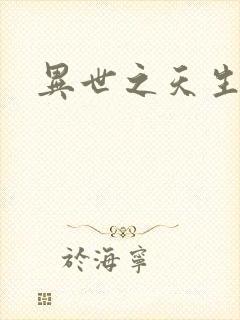 異世之天生
於海寧